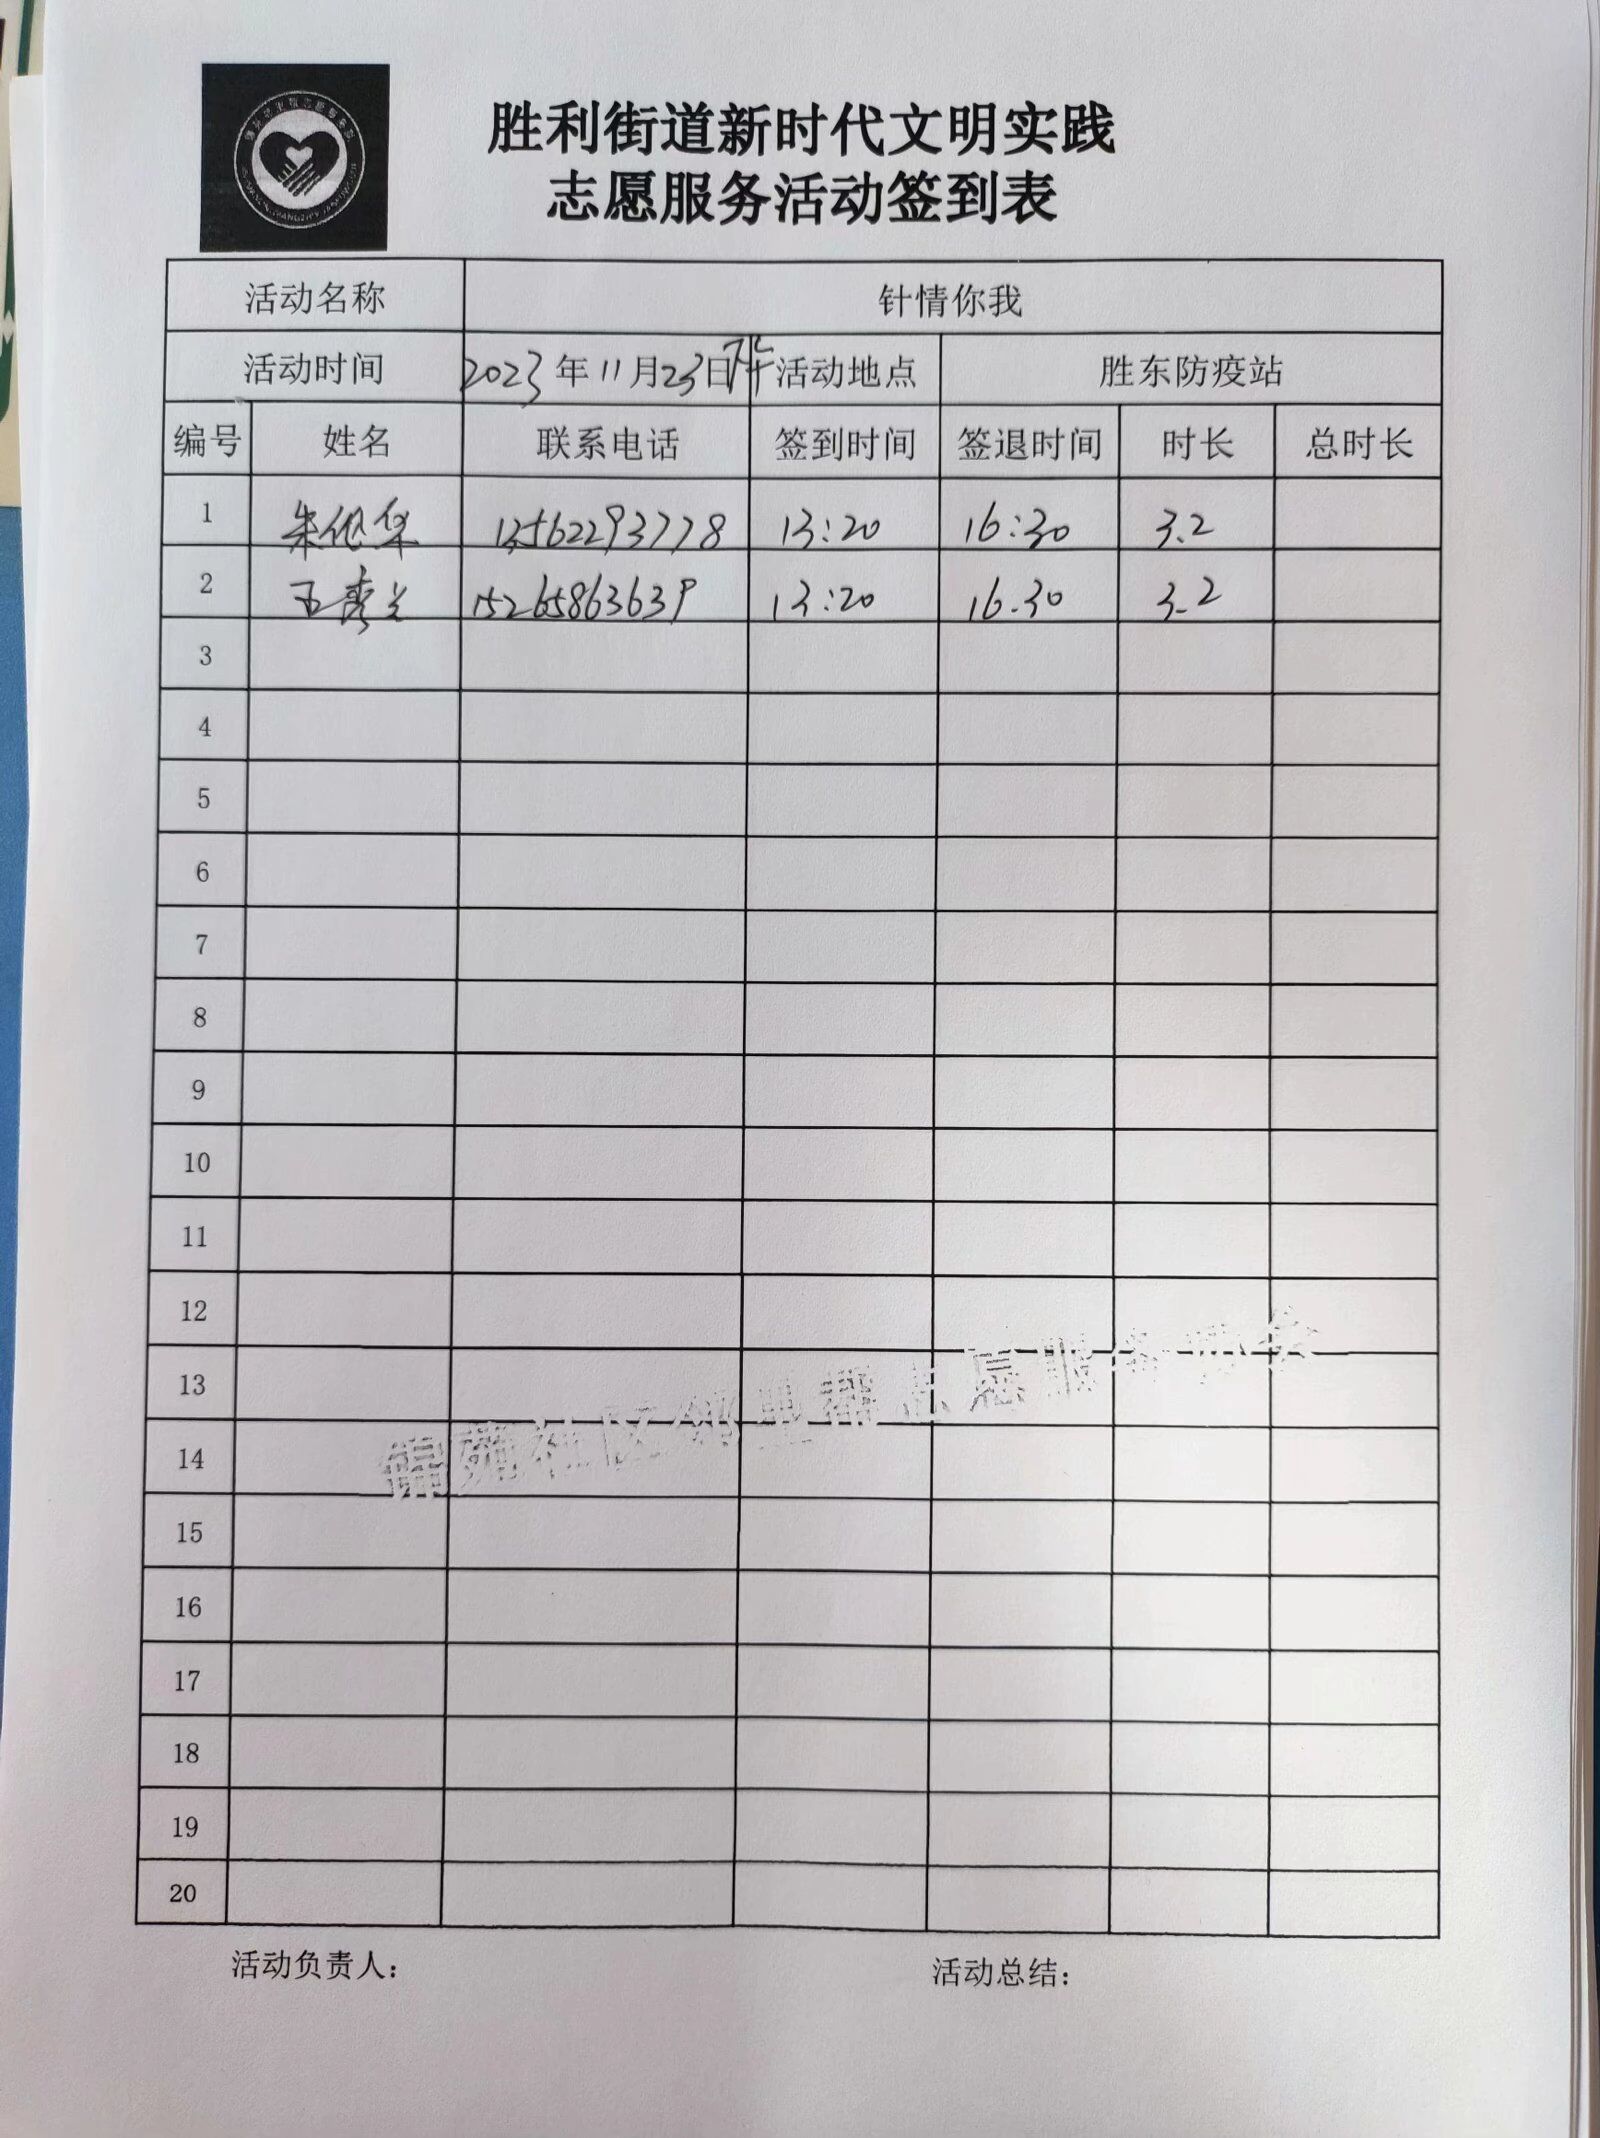 胜利街道新时代文明实践
志愿服务活动签到表
活动名称 针情你我
活动时间 2023年11月23日下午 活动地点 胜东防疫站
编号 姓名 联系电话 签到时间 签退时间 时长 总时长
1 朱继华 13562293778 13:20 16:30 3.2
2 王秀兰 15265863639 13:20 16.30 3.2
3
4
5
6
7
8
9
10
11
12
13
锦苑社区邻里帮志愿服务协会
14
15
16
17
18
19
20
活动负责人： 活动总结：